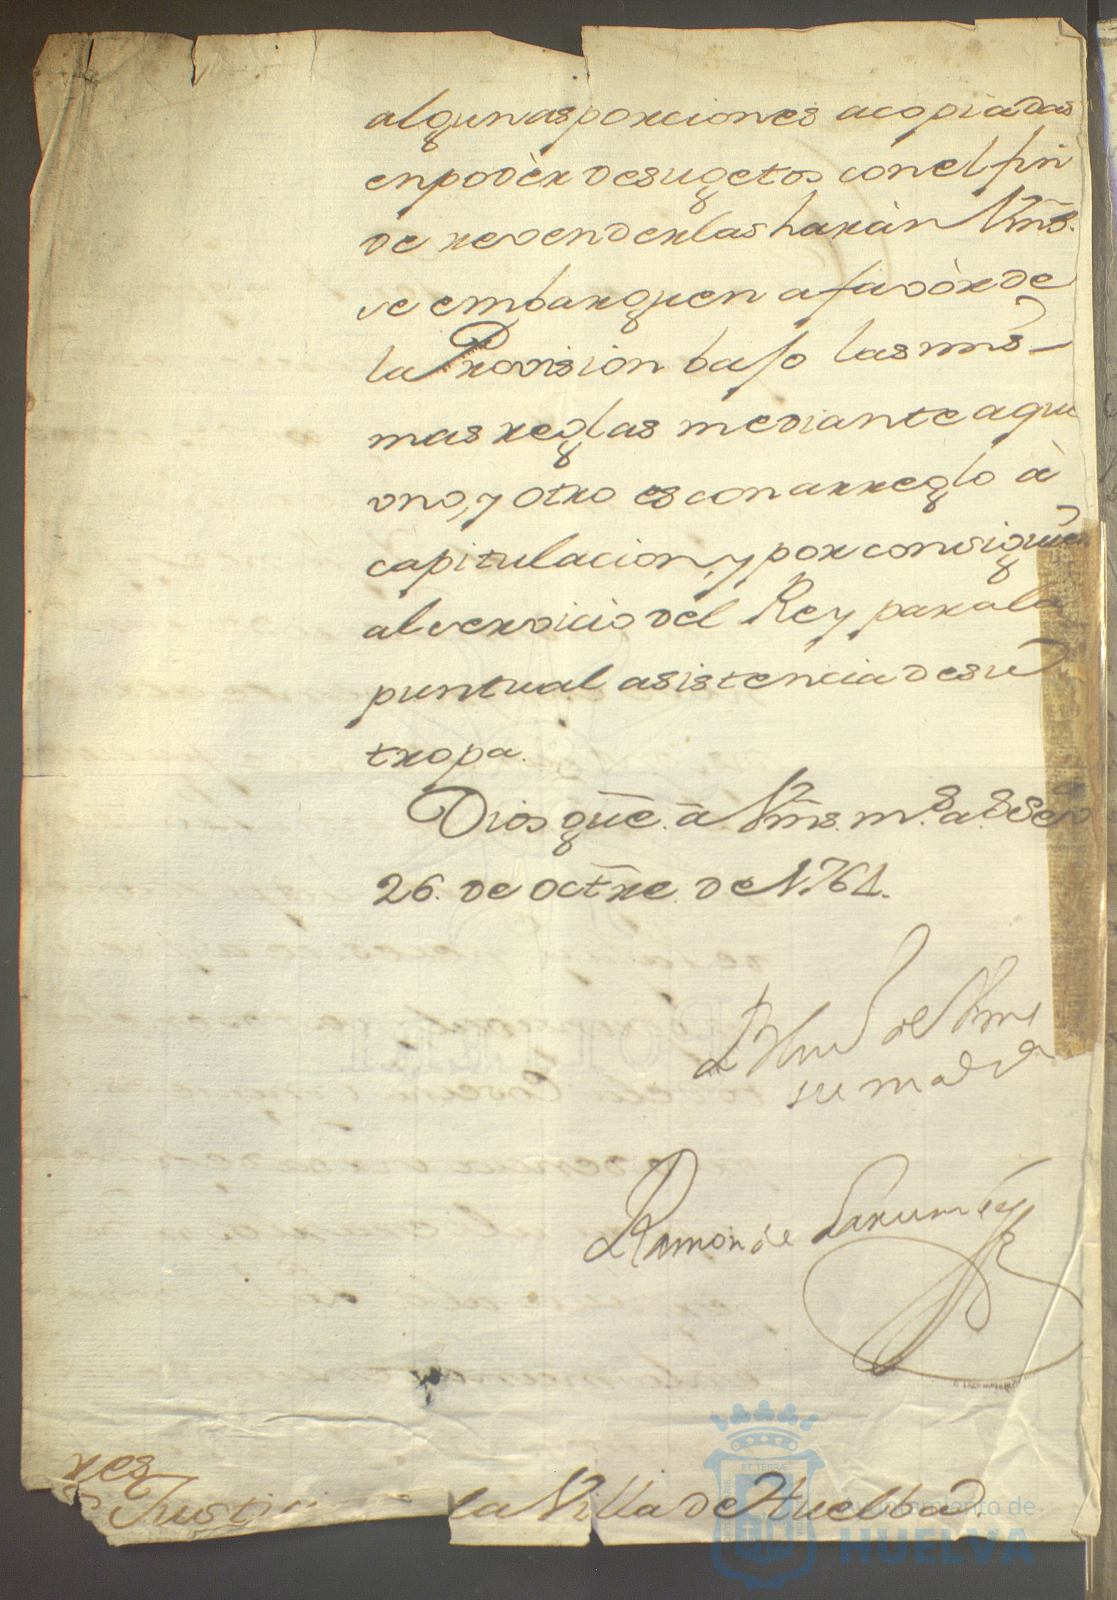 algunas porciones acopiadas
en podèr de sugetos con el fin
de revenderlas haràn Vm̃s.
se embarguen a favòr de
la Provision bajo las mis-
mas reglas mediante a que
uno, y otro es con arreglo à
capitulacion, y por consiguie
al servicio del Rey para la
puntual asistencia de su
tropa.
Dios gūe. à Vm̃s. m.s a.s
26. de octr̃e. de 1761.
de Vms
su m
Ramon de Larumbe
res
Justi la Villa de Huelba.
ET TERRÆ
Ayuntamiento de
HUELVA